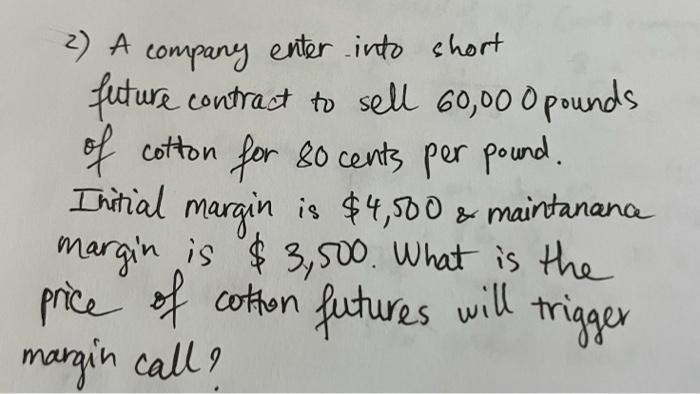 2) A company enter into short
future contract to sell 60,000 pounds
of cotton for 80 cents per pound.
Initial margin is $4,500 & maintanance
margin is $3,500. What is the
price of cotton futures will trigger
margin call?